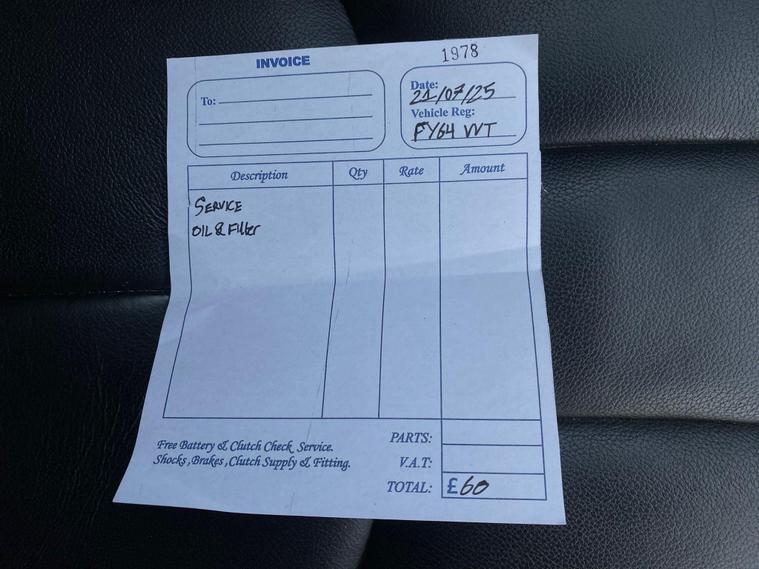 INVOICE
1978
To:
Date:
21/07/25
Vehicle Reg:
FY64 VVT
Description Qty Rate Amount
SERVICE
OIL & Filter
Free Battery & Clutch Check Service.
Shocks,Brakes,Clutch Supply & Fitting.
PARTS:
V.A.T:
TOTAL: £60